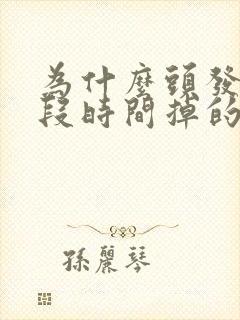 為什麼頭發
段時間掉的
孫麗琴